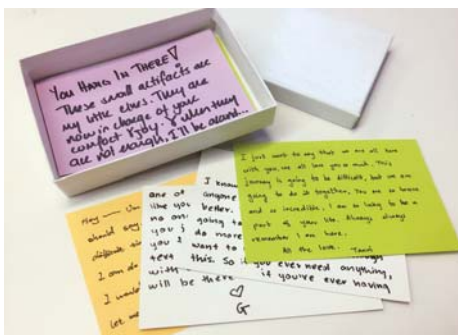 You HANG IN THERE!
These small artifacts are
my little elves. They are
now in charge of your
comfort & joy. & when they
are not enough, I'll be around...
I just want to say that we are all here
with you, we all love you so much. This
journey is going to be difficult, but we are
going to do it together. You are so brave
and so incredible. I am so lucky to be a
part of your life. Always, always
remember I am here.
All the love.
I know
one of anyone
like you better.
no one going to
you do more
you I want to
text this. So if you ever need anything,
with
will be there if you're ever having
G
Hey
should say
difficult
I am
I would
Let me